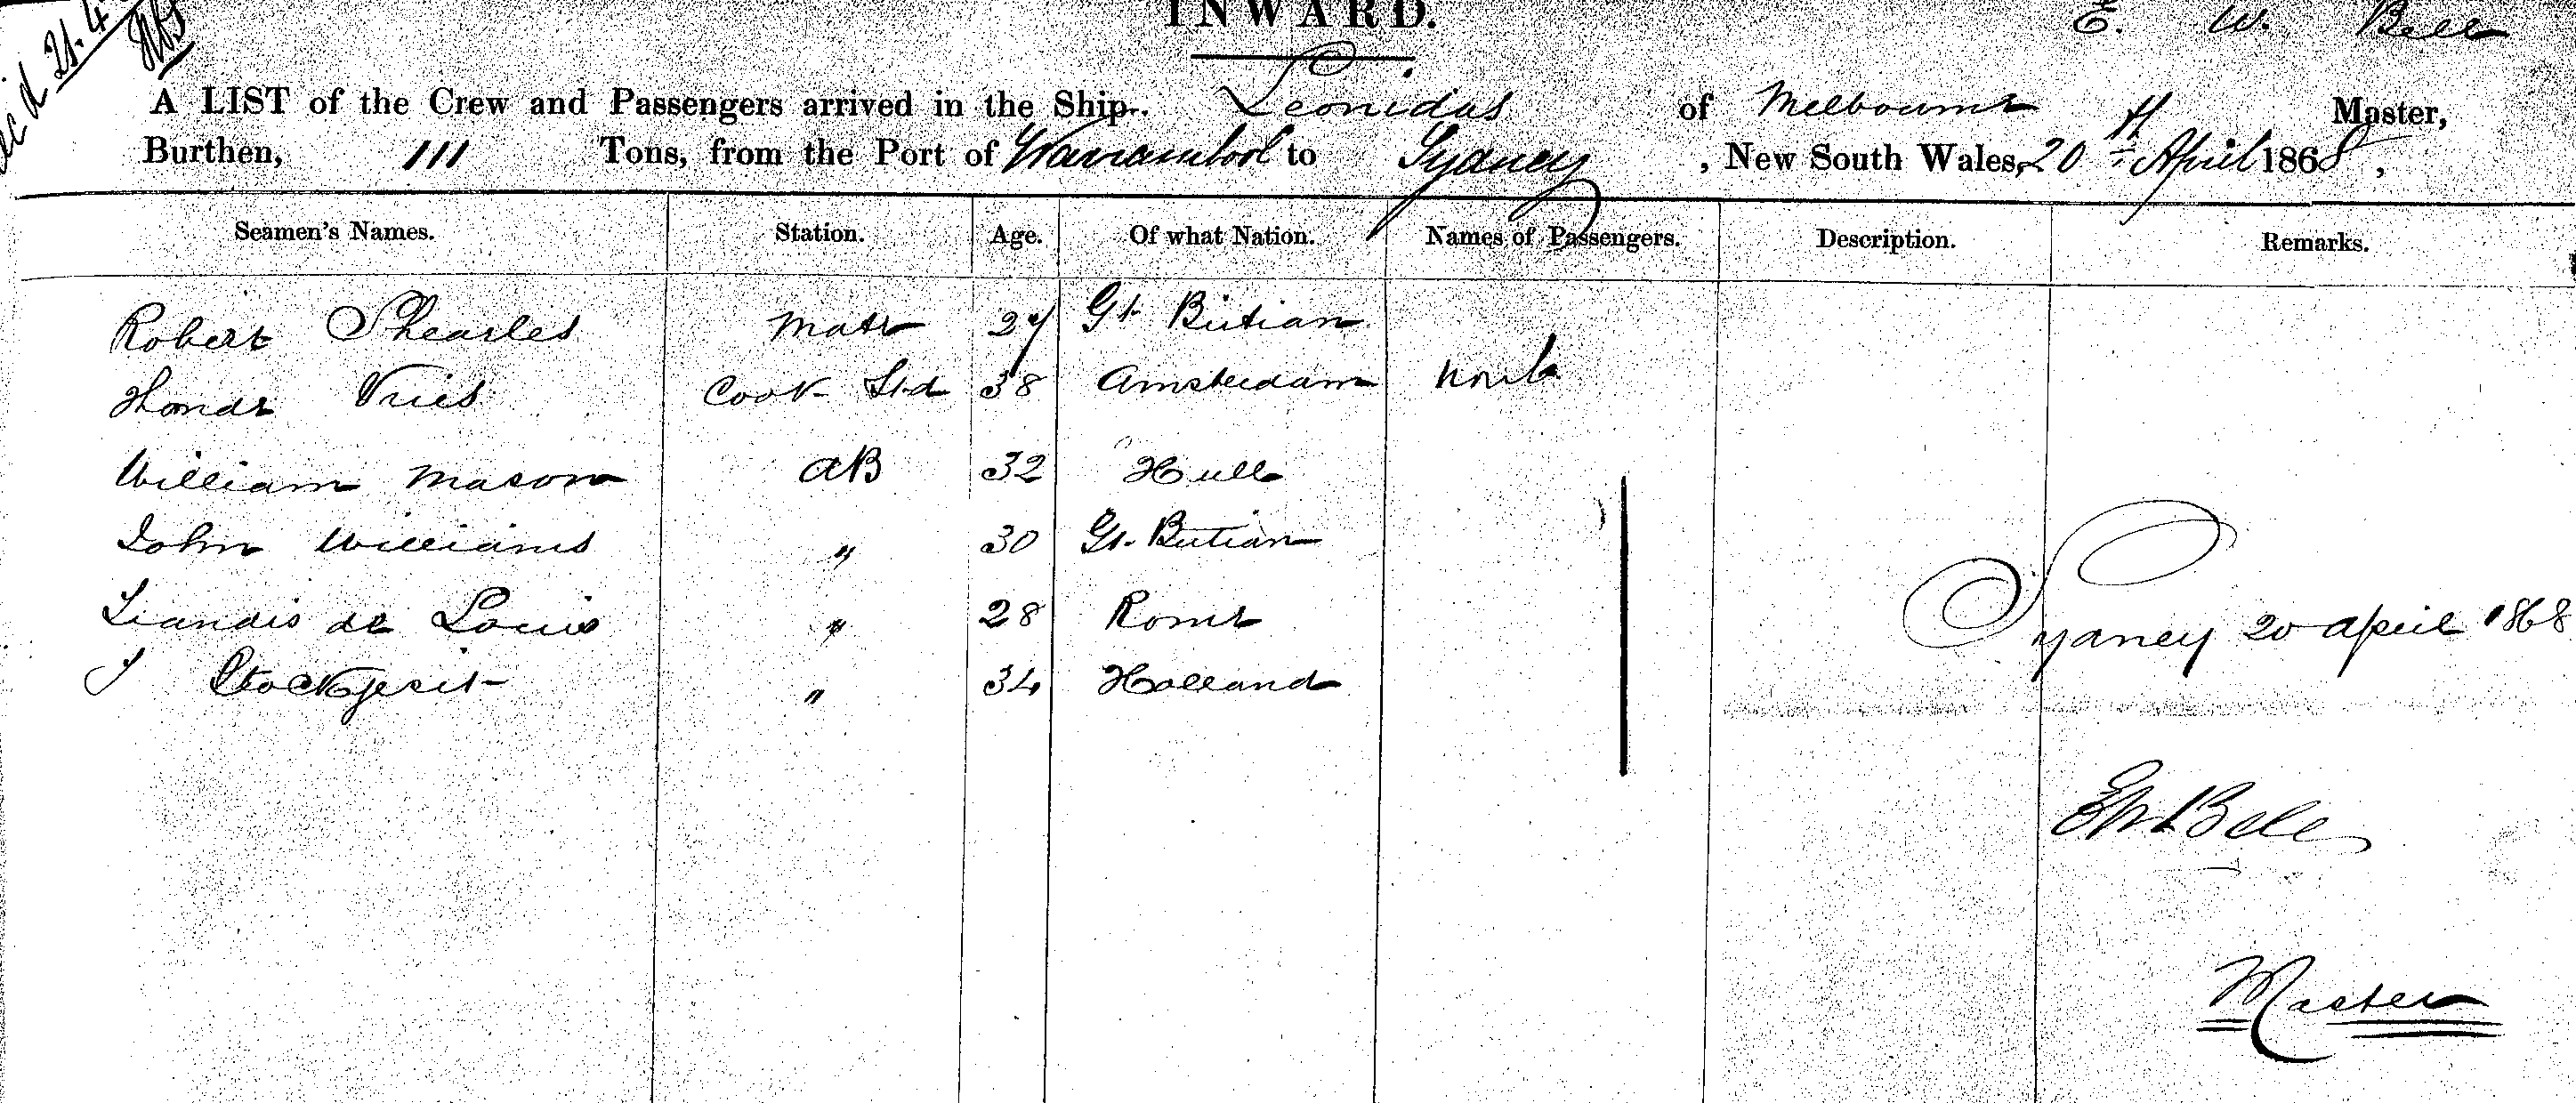 INWARD.
E. W. Bell
A LIST of the Crew and Passengers arrived in the Ship Leonidas of Melbourne Master,
Burthen, 111 Tons, from the Port of Warrambool to Sydney, New South Wales, 20th April 1868,
Seamen's Names. Station. Age. Of what Nation. Names of Passengers. Description. Remarks.
Robert Shearles Mate 27 Gt. Britian
Vries Cook Std 38 Amsterdam
William Mason AB 32 Hull
John Williams " 30 Gt. Britian
de Louis " 28 Rome
Sydney 20 April 1868
" 34 Holland
EW Bell
Master